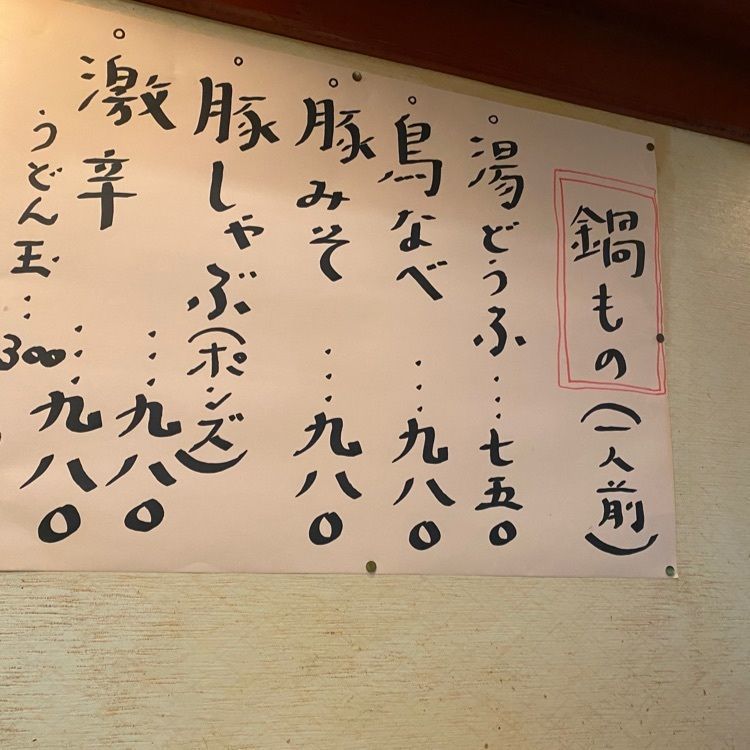 鍋もの（一人前）
。湯どうふ…七五〇
。鳥なべ…九八〇
。豚みそ…九八〇
。豚しゃぶ（ポンズ）…九八〇
。激辛…九八〇
うどん玉…300